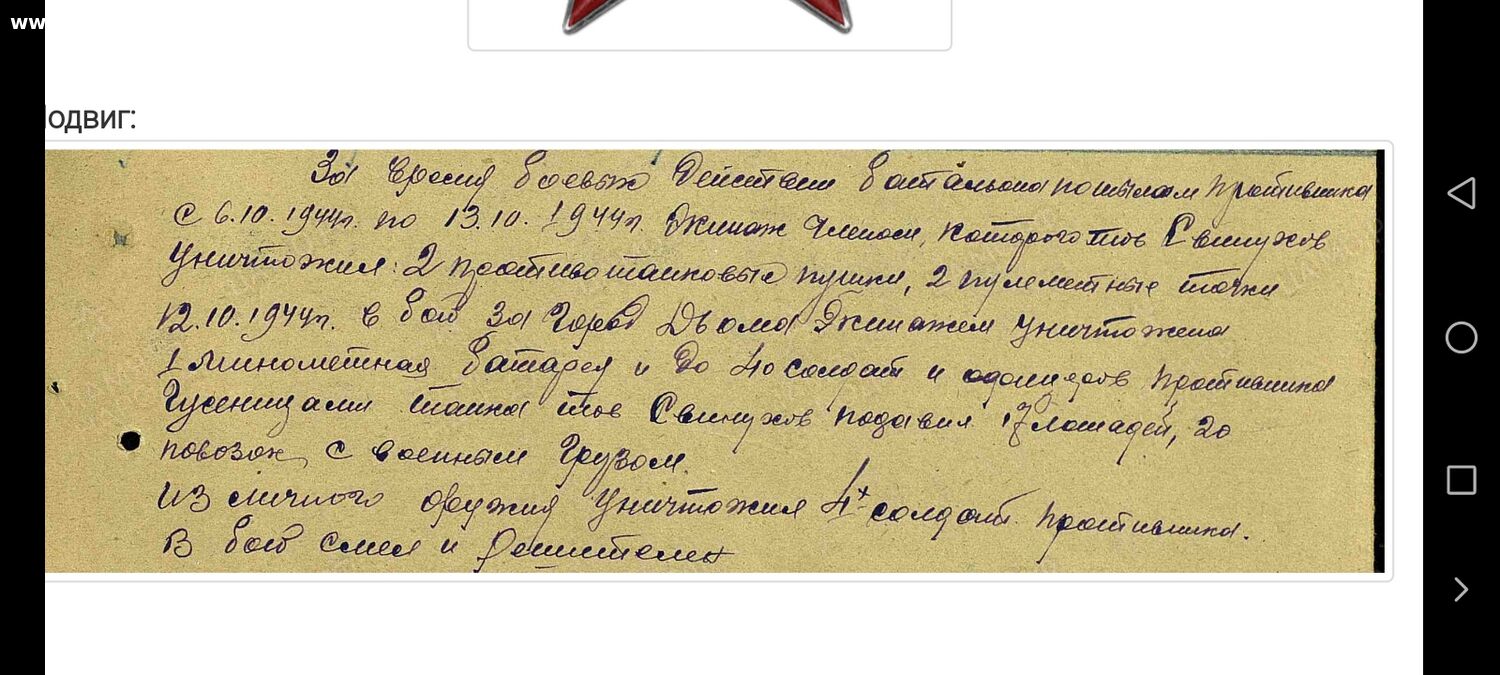 ww
одвиг:
За время боевых действии батальона по тылам противника
с 6.10.1944г. по 13.10.1944г. Экипаж членом, которого тов Свинухов
Уничтожил: 2 противотанковые пушки, 2 пулеметные точки
12.10.1944г. в бою за город Двома Экипажем уничтожена
1 минометная батарея и до 40 солдат и офицеров противника
Гусеницами танка тов Свинухов подавил 17 лошадей, 20
повозок с военным грузом.
из личного оружия уничтожил 4х солдат противника.
В бою смел и решителен